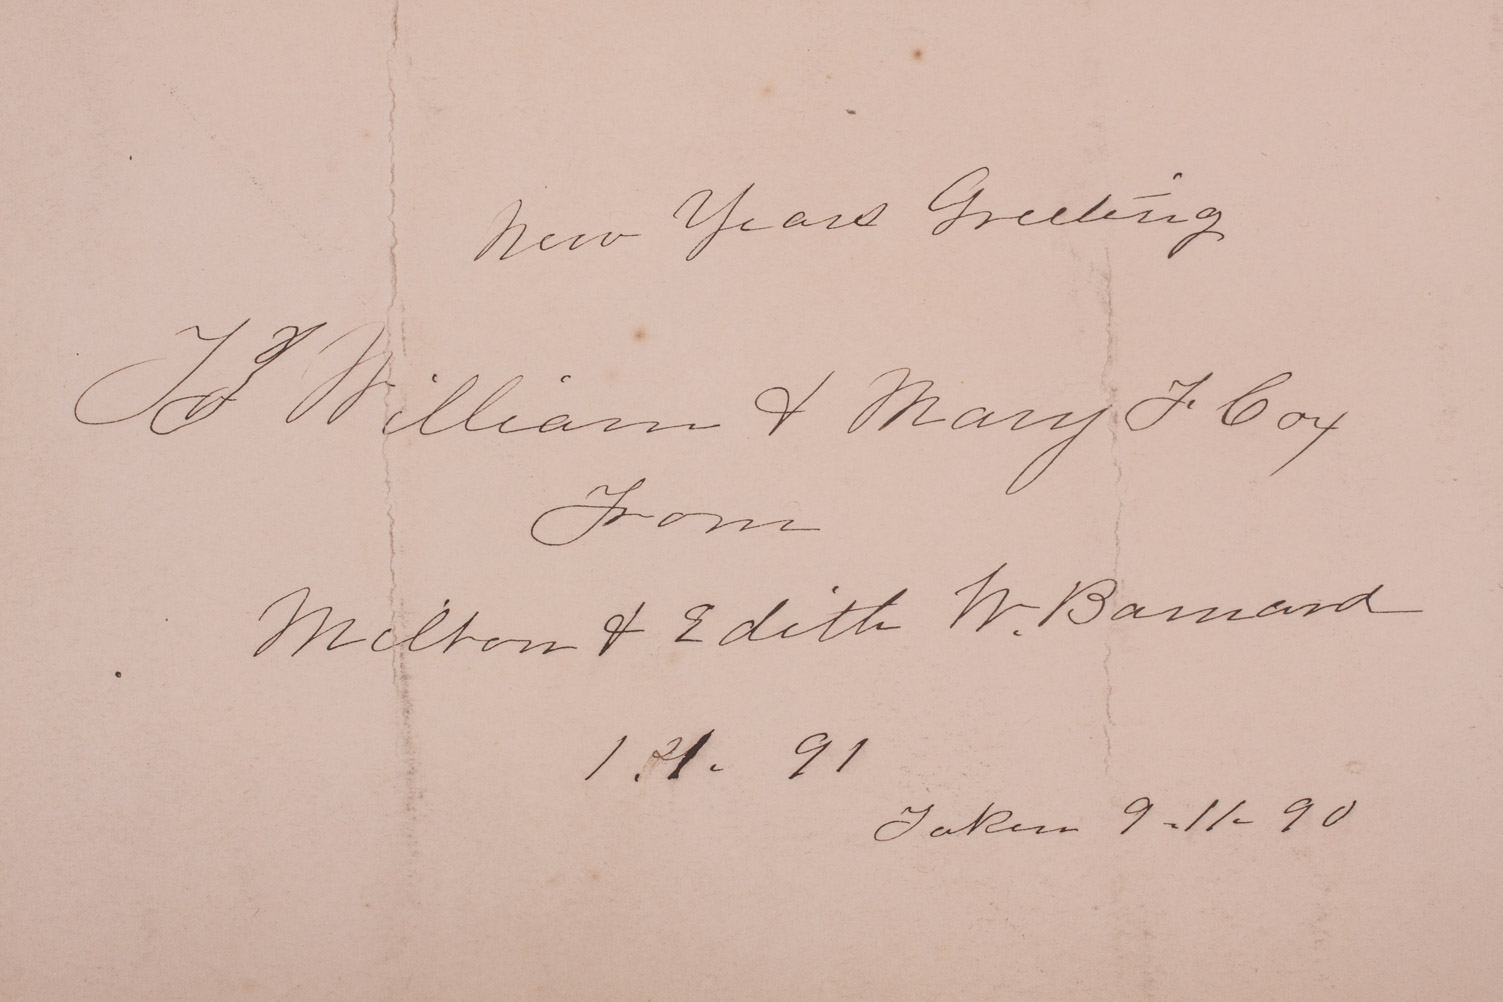 New Years Greeting
To William & Mary F Cox
From
Milton & Edith W. Barnard
1.1. 91
Taken 9-11-90